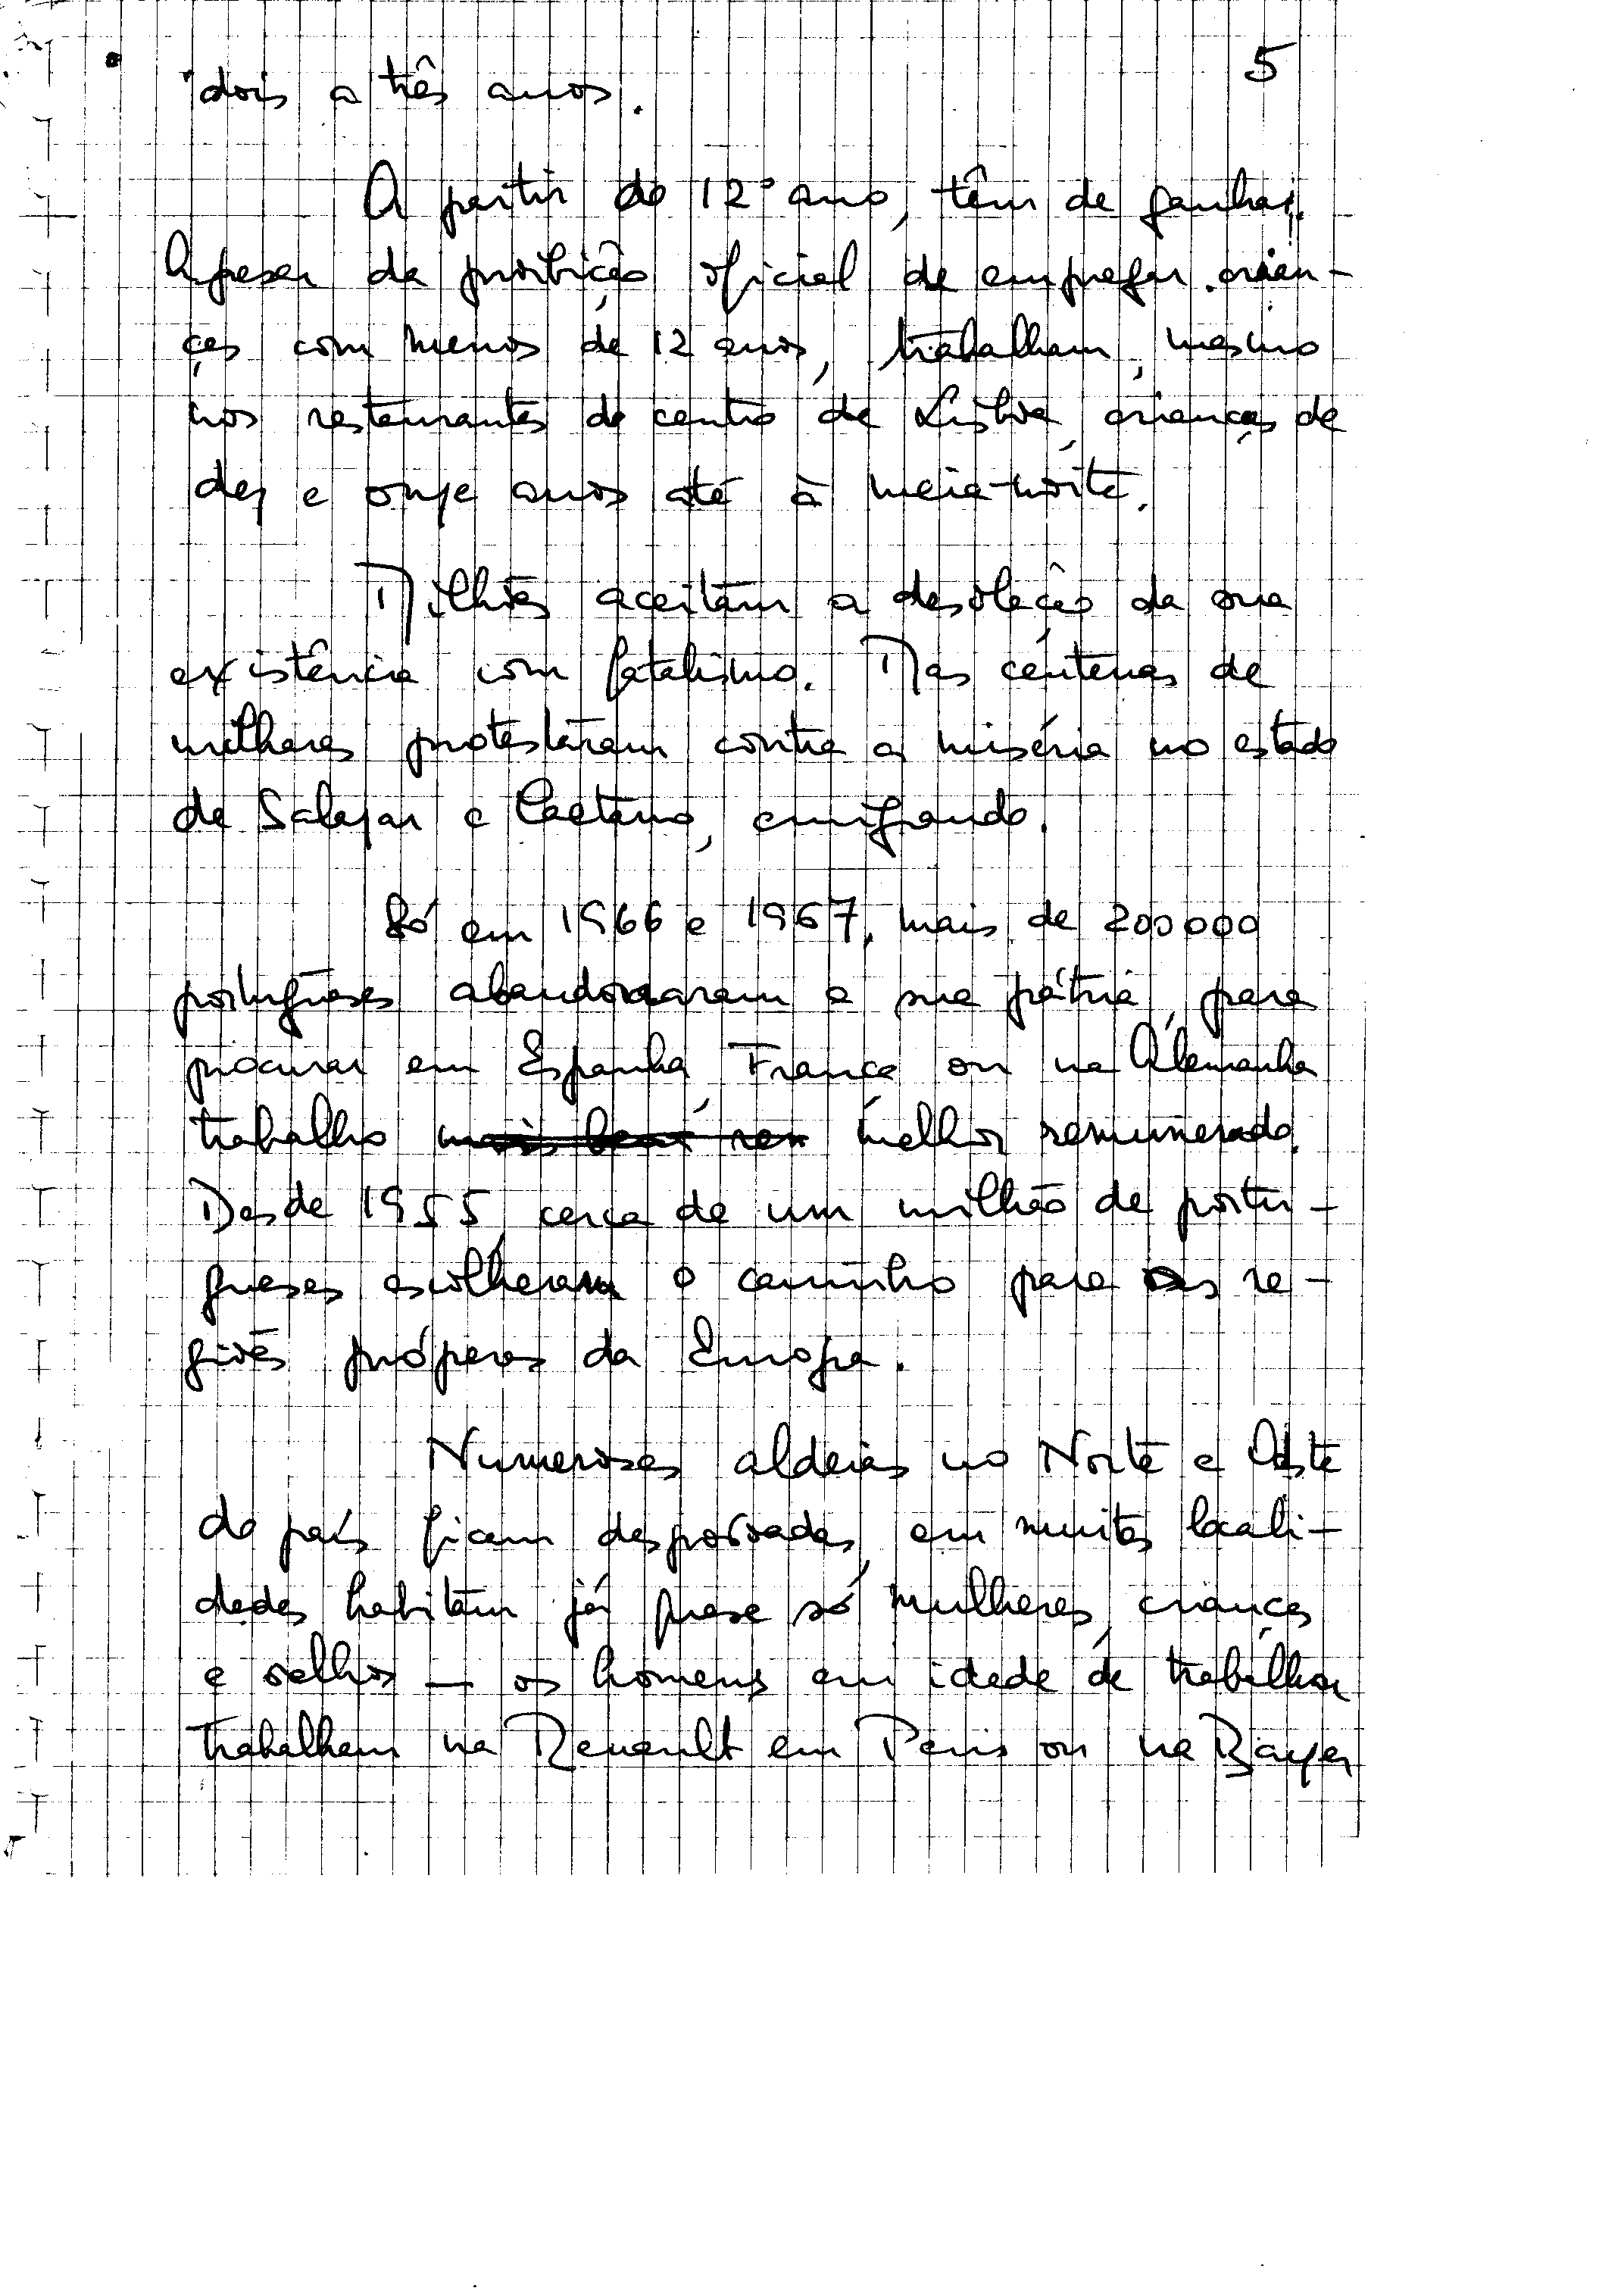 5
dois a três anos.
A partir do 12º ano, têm de ganhar.
Apesar da proibição oficial de empregar crian-
ças com menos de 12 anos, trabalham, mesmo
nos restaurantes do centro de Lisboa, crianças de
dez e onze anos até à meia-noite.
Milhões aceitam a desolação da sua
existência com fatalismo. Mas centenas de
milhares protestaram contra a miséria no estado
de Salazar e Caetano, emigrando.
Só em 1966 e 1967, mais de 200 000
portugueses abandonaram a sua pátria, para
procurar em Espanha, França ou na Alemanha
trabalho mais bem rem melhor remunerado.
Desde 1955, cerca de um milhão de portu-
gueses escolheram o caminho para as re-
giões prósperas da Europa.
Numerosas aldeias no Norte e Oeste
do país ficam despovoadas, em muitas locali-
dades habitam já quase só mulheres, crianças
e velhos — os homens em idade de trabalhar
trabalham na Renault em Paris ou na Bayer